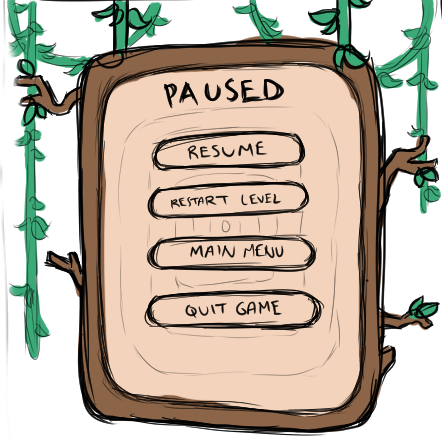 PAUSED
RESUME
RESTART LEVEL
MAIN MENU
QUIT GAME